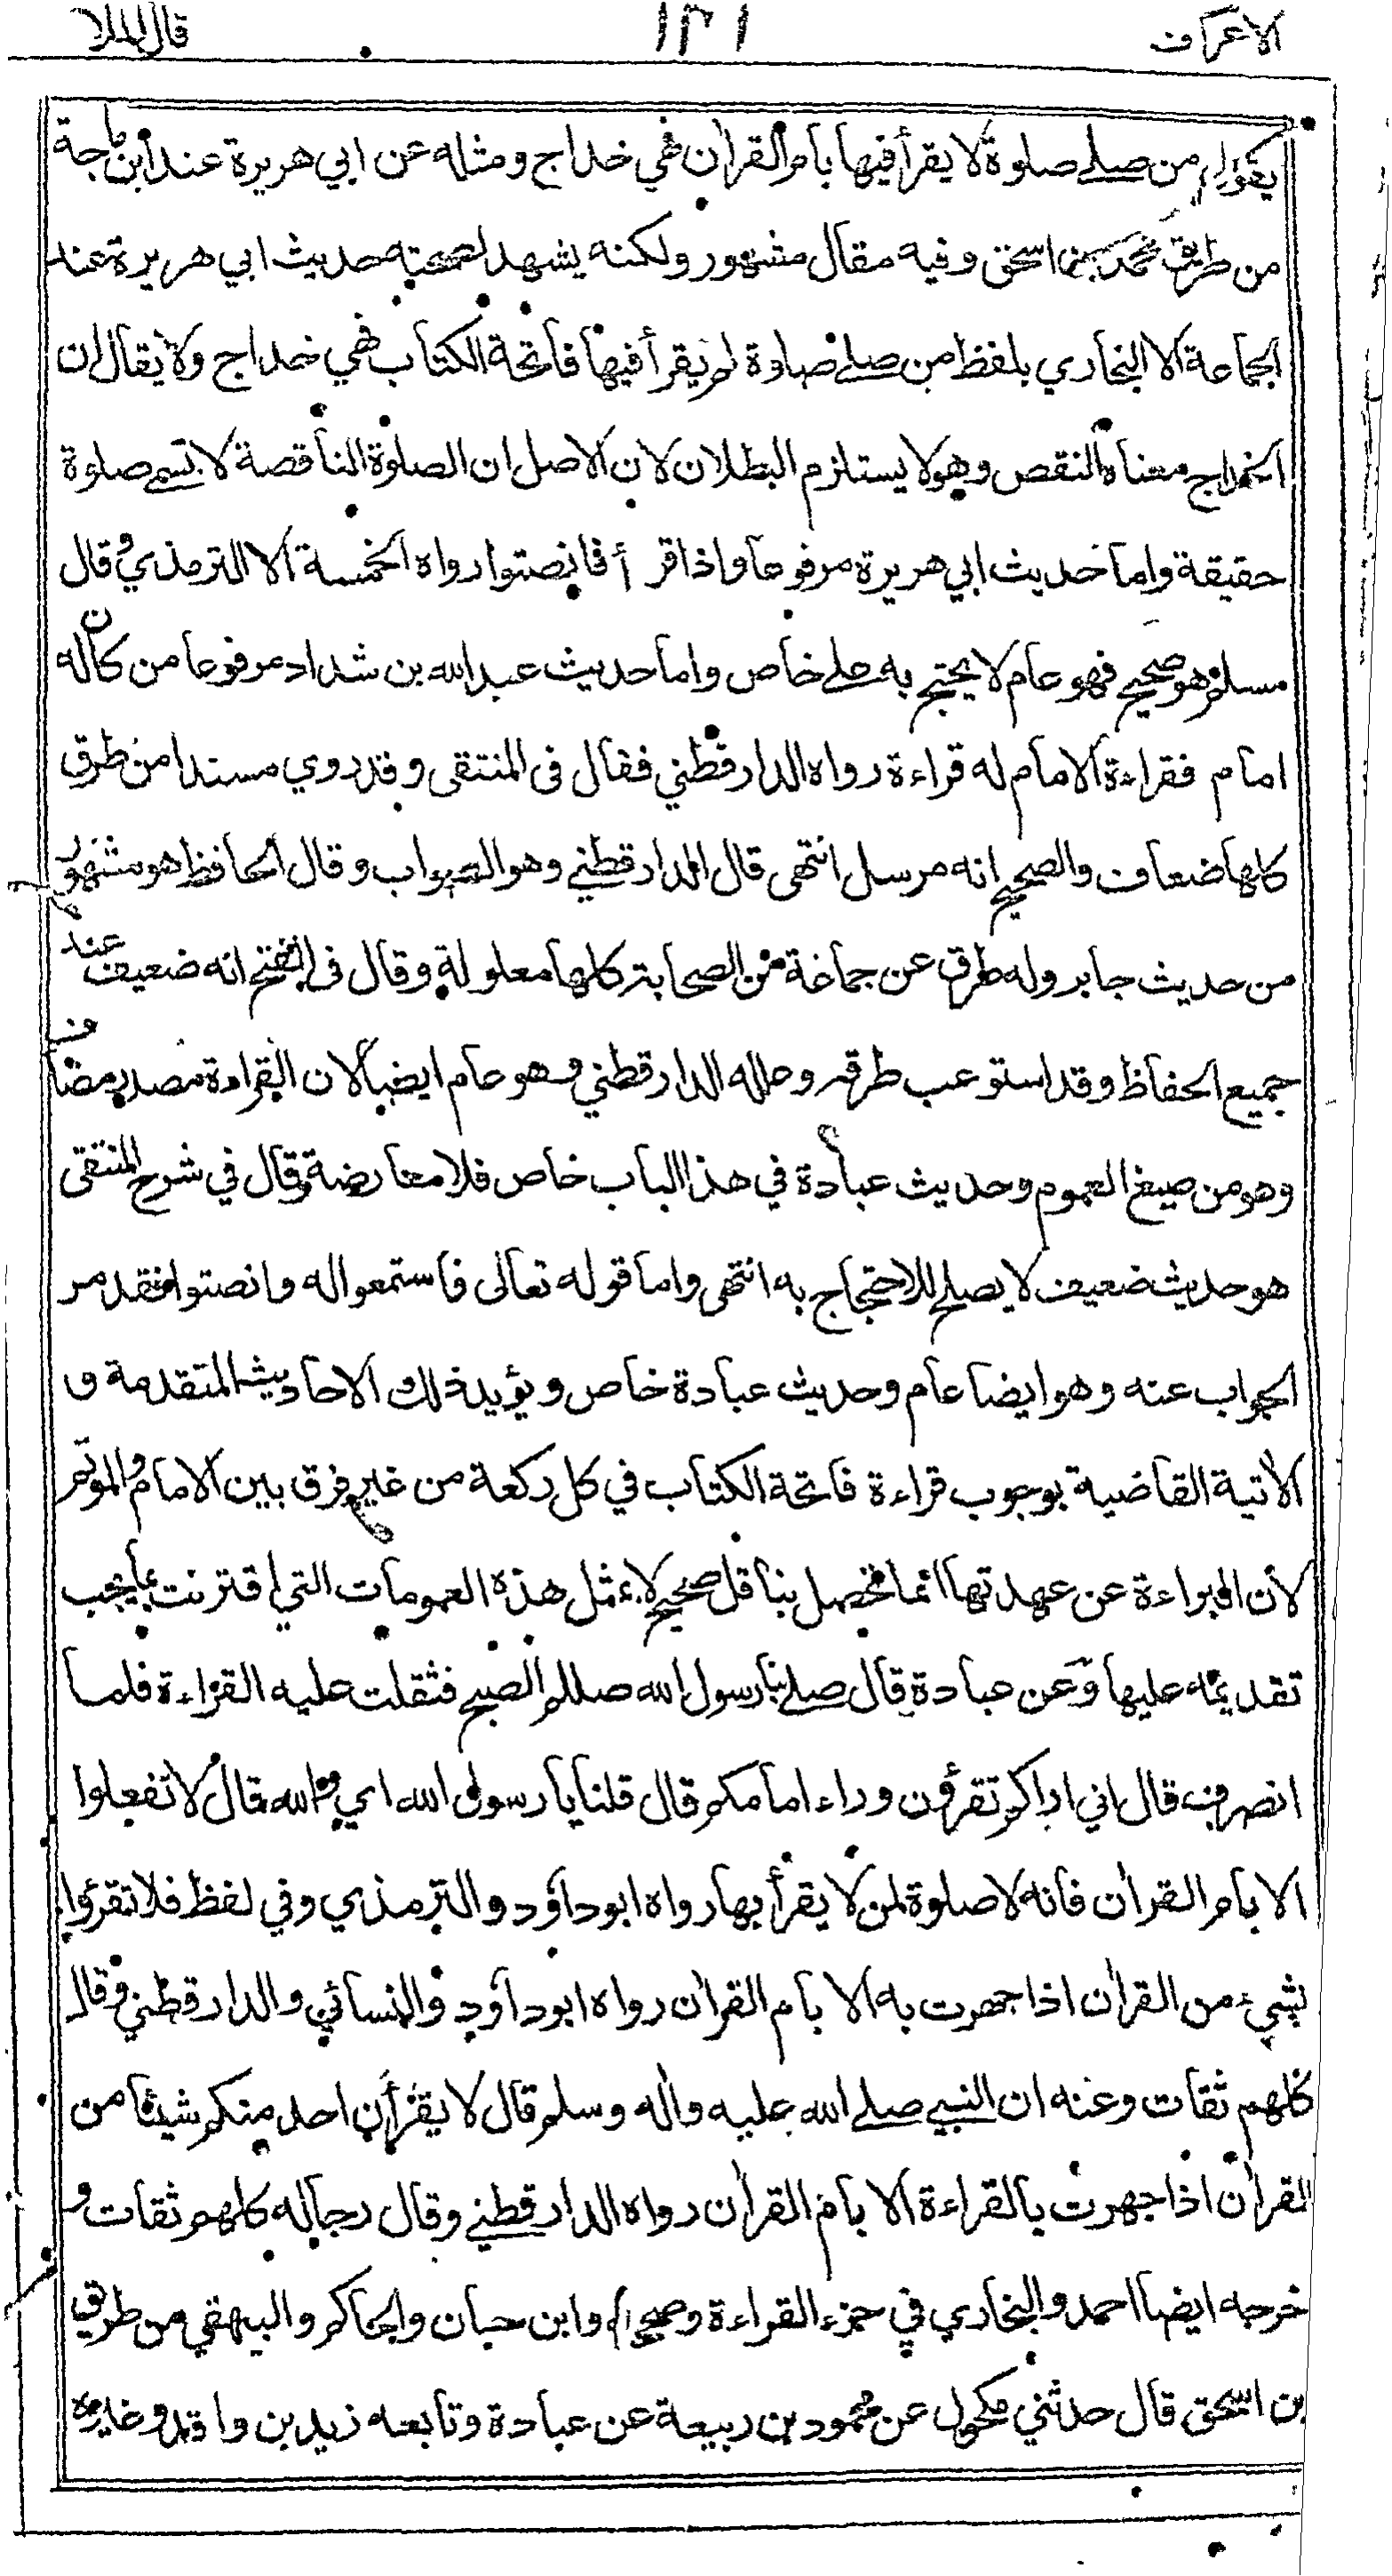 الاعراف ١٣١ قال الملا
يقول من صلے صلوة لا يقرأ فيها بأم القرآن فهي خداج ومثله عن ابي هريرة عند ابن ماجة
من طريق محمد بن اسحق وفيه مقال مشهور ولكنه يشهد لصحته حديث ابي هريرة عند
الجماعة الا البخاري بلفظ من صلے صلوة لم يقرأ فيها فاتحة الكتاب فهي خداج ولا يقال ان
الخداج معناه النقص وهو لا يستلزم البطلان لان الاصل ان الصلوة الناقصة لا تسمى صلوة
حقيقة واما حديث ابي هريرة مرفوعا واذا قرأ فانصتوا رواه الخمسة الا الترمذي وقال
مسلم هو صحيح فهو عام لا يحتج به علے خاص واما حديث عبد الله بن شداد مرفوعا من كان له
امام فقراءة الامام له قراءة رواه الدارقطني فقال فى المنتقى وقد روي مسندا من طرق
كلها ضعاف والصحيح انه مرسل انتهى قال الدارقطني وهو الصواب وقال الحافظ هو مشهور
من حديث جابر وله طرق عن جماعة من الصحابة كلها معلولة وقال فى الفتح انه ضعيف عند
جميع الحفاظ وقد استوعب طرقه وعلله الدارقطني وهو عام ايضا لان القراءة مصدر مضاف
وهو من صيغ العموم وحديث عبادة في هذا الباب خاص فلا معارضة وقال في شرح المنتقى
هو حديث ضعيف لا يصلح للاحتجاج به انتهى واما قوله تعالى فاستمعوا له وانصتوا فقد مر
الجواب عنه وهو ايضا عام وحديث عبادة خاص ويؤيد ذلك الاحاديث المتقدمة و
الآتية القاضية بوجوب قراءة فاتحة الكتاب في كل ركعة من غير فرق بين الامام والمؤتم
لأن البراءة عن عهدتها انما تحصل بناقل صحيح لا بمثل هذه العمومات التي اقترنت بما يجب
تقديمه عليها وعن عبادة قال صلے بنا رسول الله صللم الصبح فثقلت عليه القراءة فلما
انصرف قال اني اراكم تقرؤن وراء امامكم قال قلنا يا رسول الله اي والله قال لا تفعلوا
الا بأم القرآن فانه لا صلوة لمن لا يقرأ بها رواه ابو داؤد والترمذي وفي لفظ فلا تقرؤا
بشيء من القرآن اذا جهرت به الا بأم القرآن رواه ابو داؤد والنسائي والدارقطني وقال
كلهم ثقات وعنه ان النبي صلے الله عليه وآله وسلم قال لا يقرأن احد منكم شيئا من
القرآن اذا جهرت بالقراءة الا بأم القرآن رواه الدارقطني وقال رجاله كلهم ثقات و
خرجه ايضا احمد والبخاري في جزء القراءة وصححه وابن حبان والحاكم والبيهقي من طريق
بن اسحق قال حدثني مكحول عن محمود بن ربيعة عن عبادة وتابعه زيد بن واقد وغيره